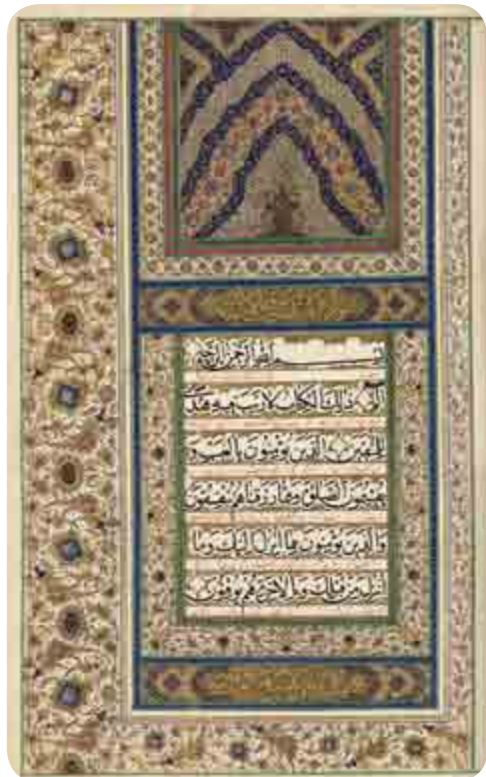 بسم الله الرحمن الرحیم
الم ذلك الكتاب لا ريب فيه هدى
للمتقين الذين يؤمنون بالغيب و
يقيمون الصلوة ومما رزقناهم ينفقون
والذين يؤمنون بما انزل اليك وما
انزل من قبلك وبالاخرة هم يوقنون